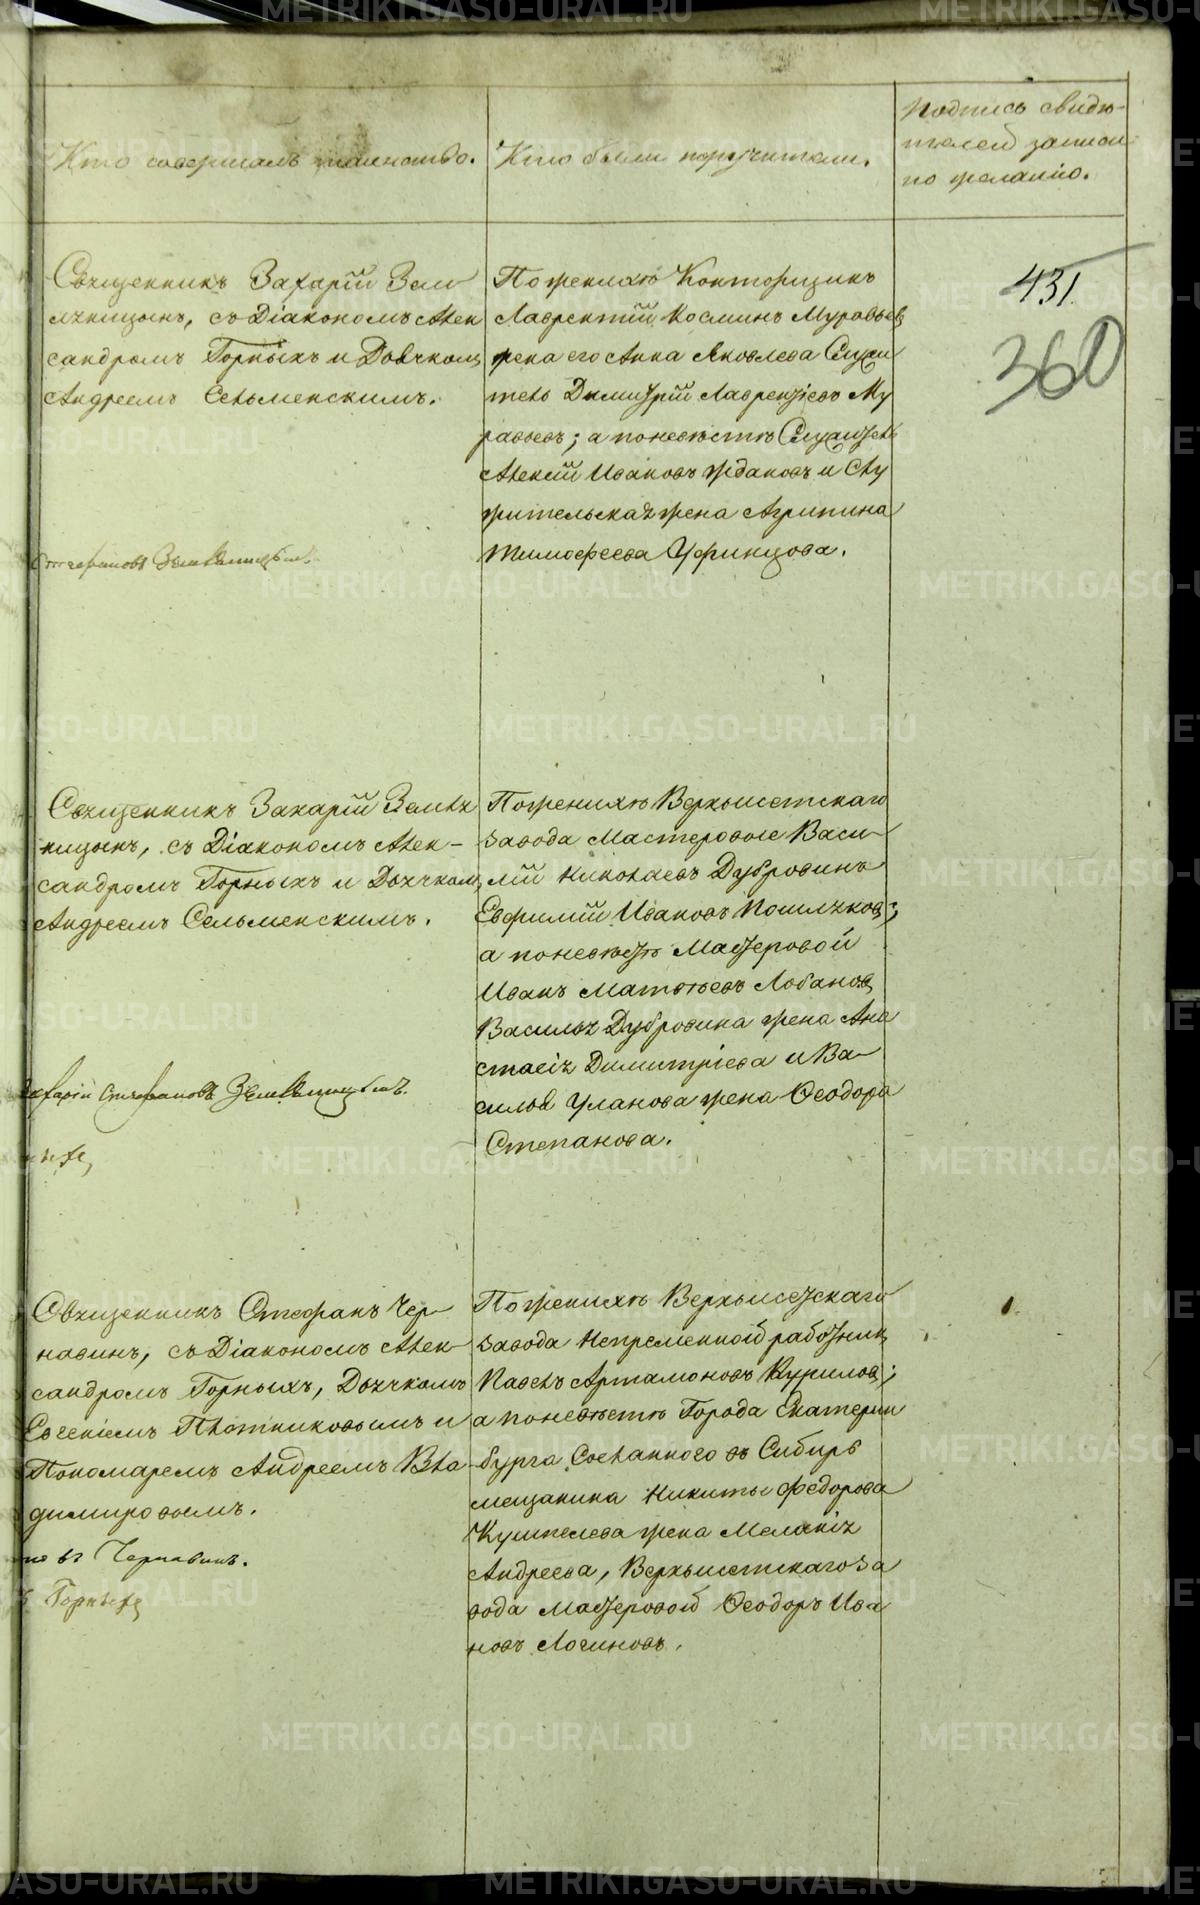 Кто совершалъ таинство.
Кто были поручители.
Подпись свидѣ-
телей записи
по желанію.
431.
360
Священникъ Захарій Зем
ляницынъ, съ Діакономъ Алек
сандромъ Горныхъ и Дьячком
Андреемъ Сельменскимъ.
Стефановъ Земляницынъ.
По женихѣ Конторщикъ
Лаврентій Косминъ Муравьев
жена его Анна Яковлева Служи
тель Димитрій Лаврентіевъ Му
равьевъ; а по невѣстѣ Служитель
Алексій Ивановъ Ждановъ и Слу
жительская жена Агрипина
Тимофеева Уфинцова.
Священникъ Захарій Земля
ницынъ, съ Діакономъ Алек-
сандромъ Горныхъ и Дьячком
Андреемъ Сельменскимъ.
Захарій Стефановъ Земляницынъ.
По женихѣ Верхъисетскаго
завода Мастеровые Васи-
лій Николаевъ Дубровинъ
Евфимій Ивановъ Пошляков;
а по невѣстѣ Мастеровой
Иванъ Матвѣевъ Лобанов
Василья Дубровина жена Ана
стасія Димитріева и Ва-
силья Уланова жена Ѳеодора
Степанова.
Священникъ Стефанъ Чер-
навинъ, съ Діакономъ Алек-
сандромъ Горныхъ, Дьячкомъ
Евгеніемъ Плотниковымъ и
Пономаремъ Андреемъ Вла
димировымъ.
въ Чернавинъ.
Горныхъ
По женихѣ Верхъисетскаго
завода Непременной работник
Павелъ Артамоновъ Курилов;
а по невѣстѣ Города Екатерин
бурга Сосланного въ Сибирь
мещанина Никиты Федорова
Кушпелева жена Меланія
Андреева, Верхъисетскаго за
вода Мастеровой Ѳеодоръ Ива
новъ Логиновъ.
METRIKI.GASO-URAL.RU